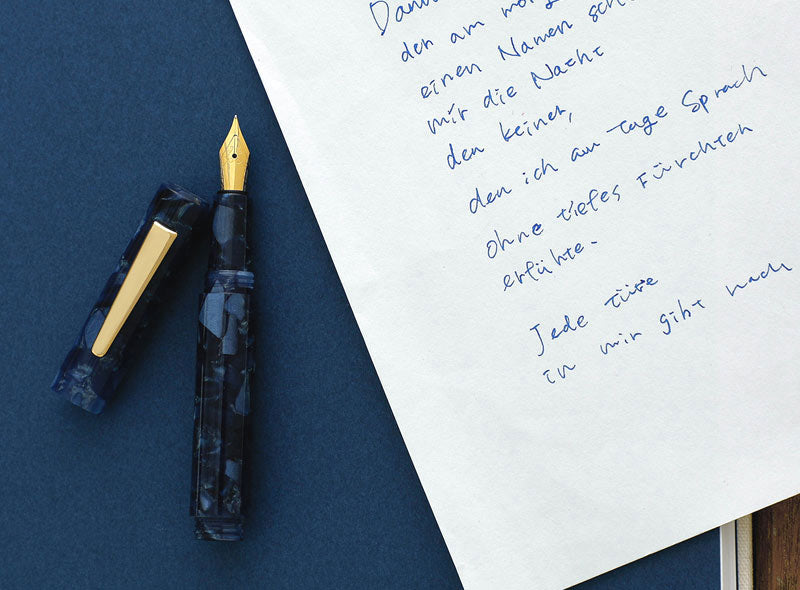 den am
einen Namen
mir die Nacht
den keiner,
den ich am tage Sprach
ohne tiefes Fürchten
erfühte-
Jede türe
in mir gibt nach